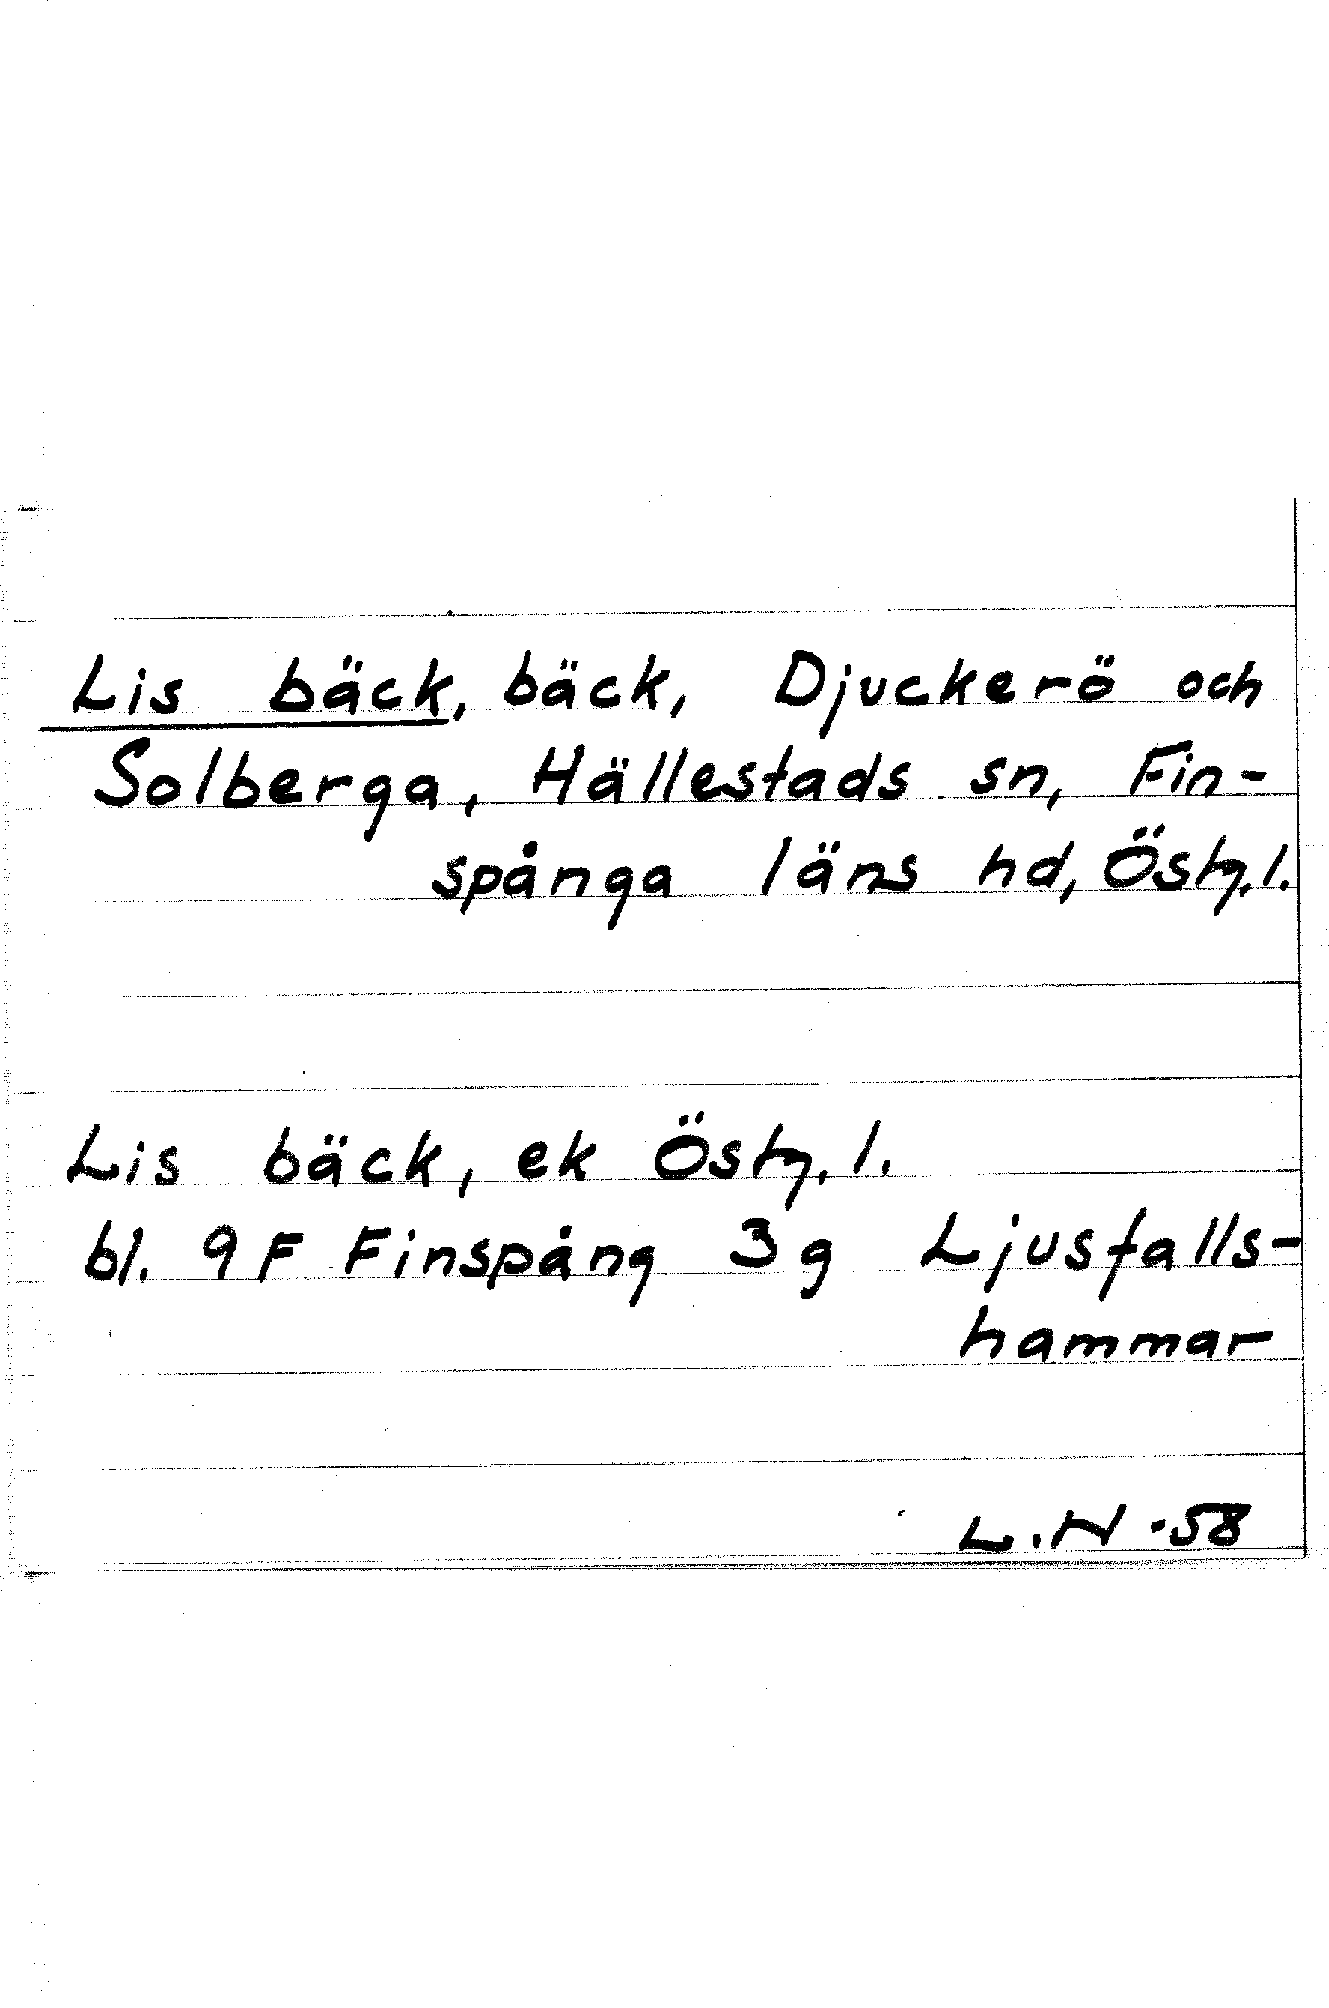 Lis bäck, bäck, Djuckerö och
Solberga, Hällestads sn, Fin-
spånga läns hd, Östg. l.
Lis bäck, ek Östg. l.
bl. 9 F Finspång 3 g Ljusfalls-
hammar
L.N -58